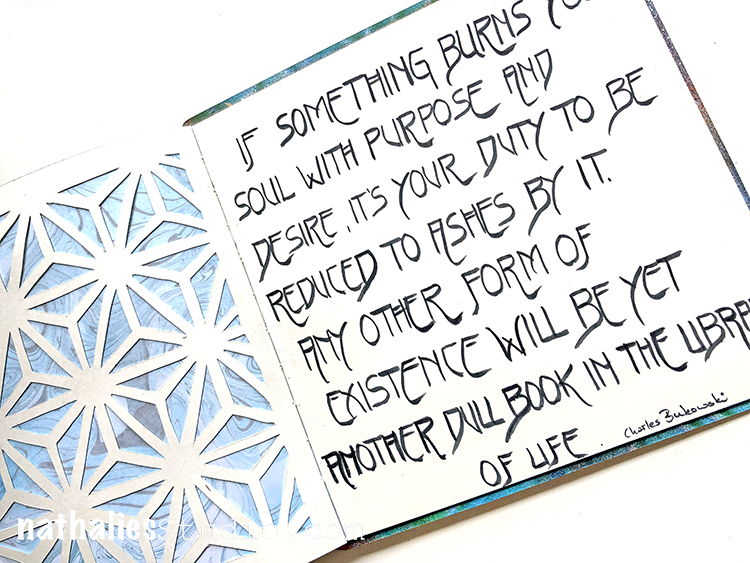 IF SOMETHING BURNS YO
SOUL WITH PURPOSE AND
DESIRE, IT'S YOUR DUTY TO BE
REDUCED TO ASHES BY IT.
ANY OTHER FORM OF
EXISTENCE WILL BE YET
ANOTHER DULL BOOK IN THE LIBRA
OF LIFE.
Charles Bukowski
nathaliesstudio.com